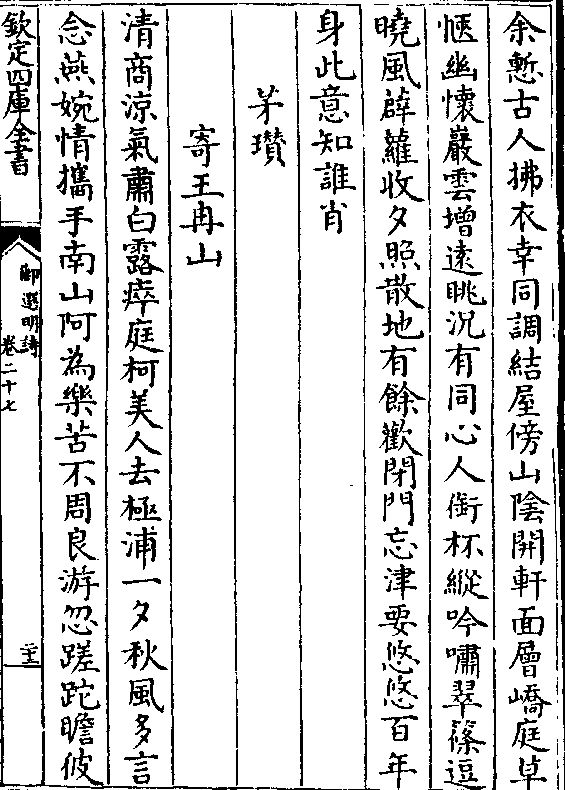 余慙古人拂衣幸同調結屋傍山陰開軒面層嶠庭草
愜幽懷巖雲增遠眺況有同心人銜杯縱吟嘯翠篠逗
曉風薜蘿收夕照散地有餘歡閉門忘津要悠悠百年
身此意知誰肖
茅瓚
寄王冉山
清商涼氣肅白露瘁庭柯美人去極浦一夕秋風多言
念燕婉情攜手南山阿為樂苦不周良游忽蹉跎瞻彼
欽定四庫全書
御選明詩
卷二十七
二十三